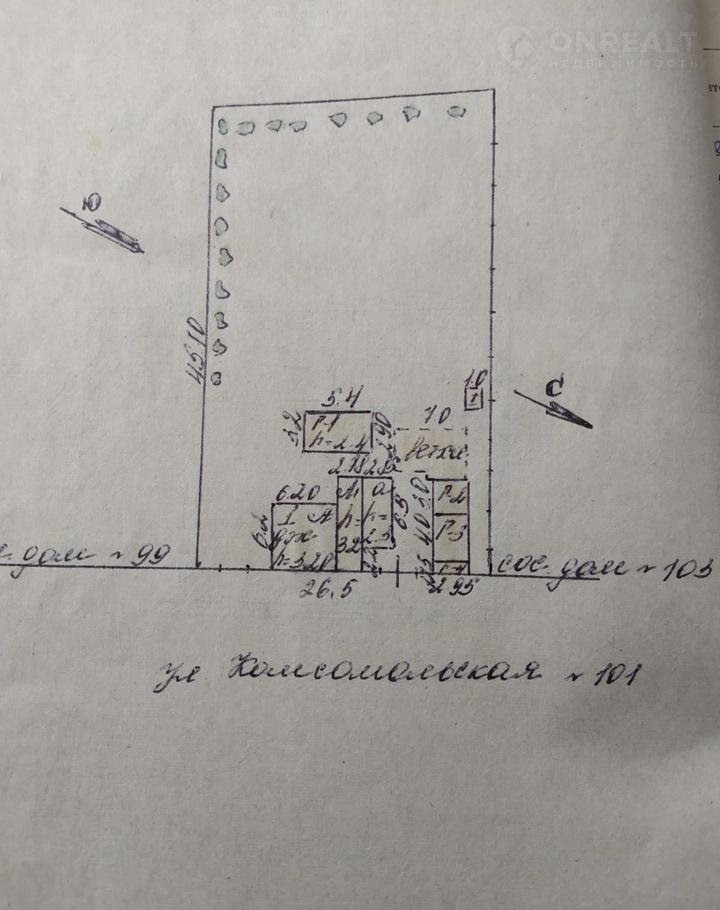 ONREALT
НЕДВИЖИМОСТЬ
Ю
45.10
1.0
С
5.4
3.2
Г-1
h=2.4
2.90
7.0
ветхое
6.20
6.2
I А
h=3.20
h=
h=
2.3
6.5
4.0
Г-2
Г-3
26.5
2.95
дом № 99
сос. дом № 103
ул Комсомольская № 101